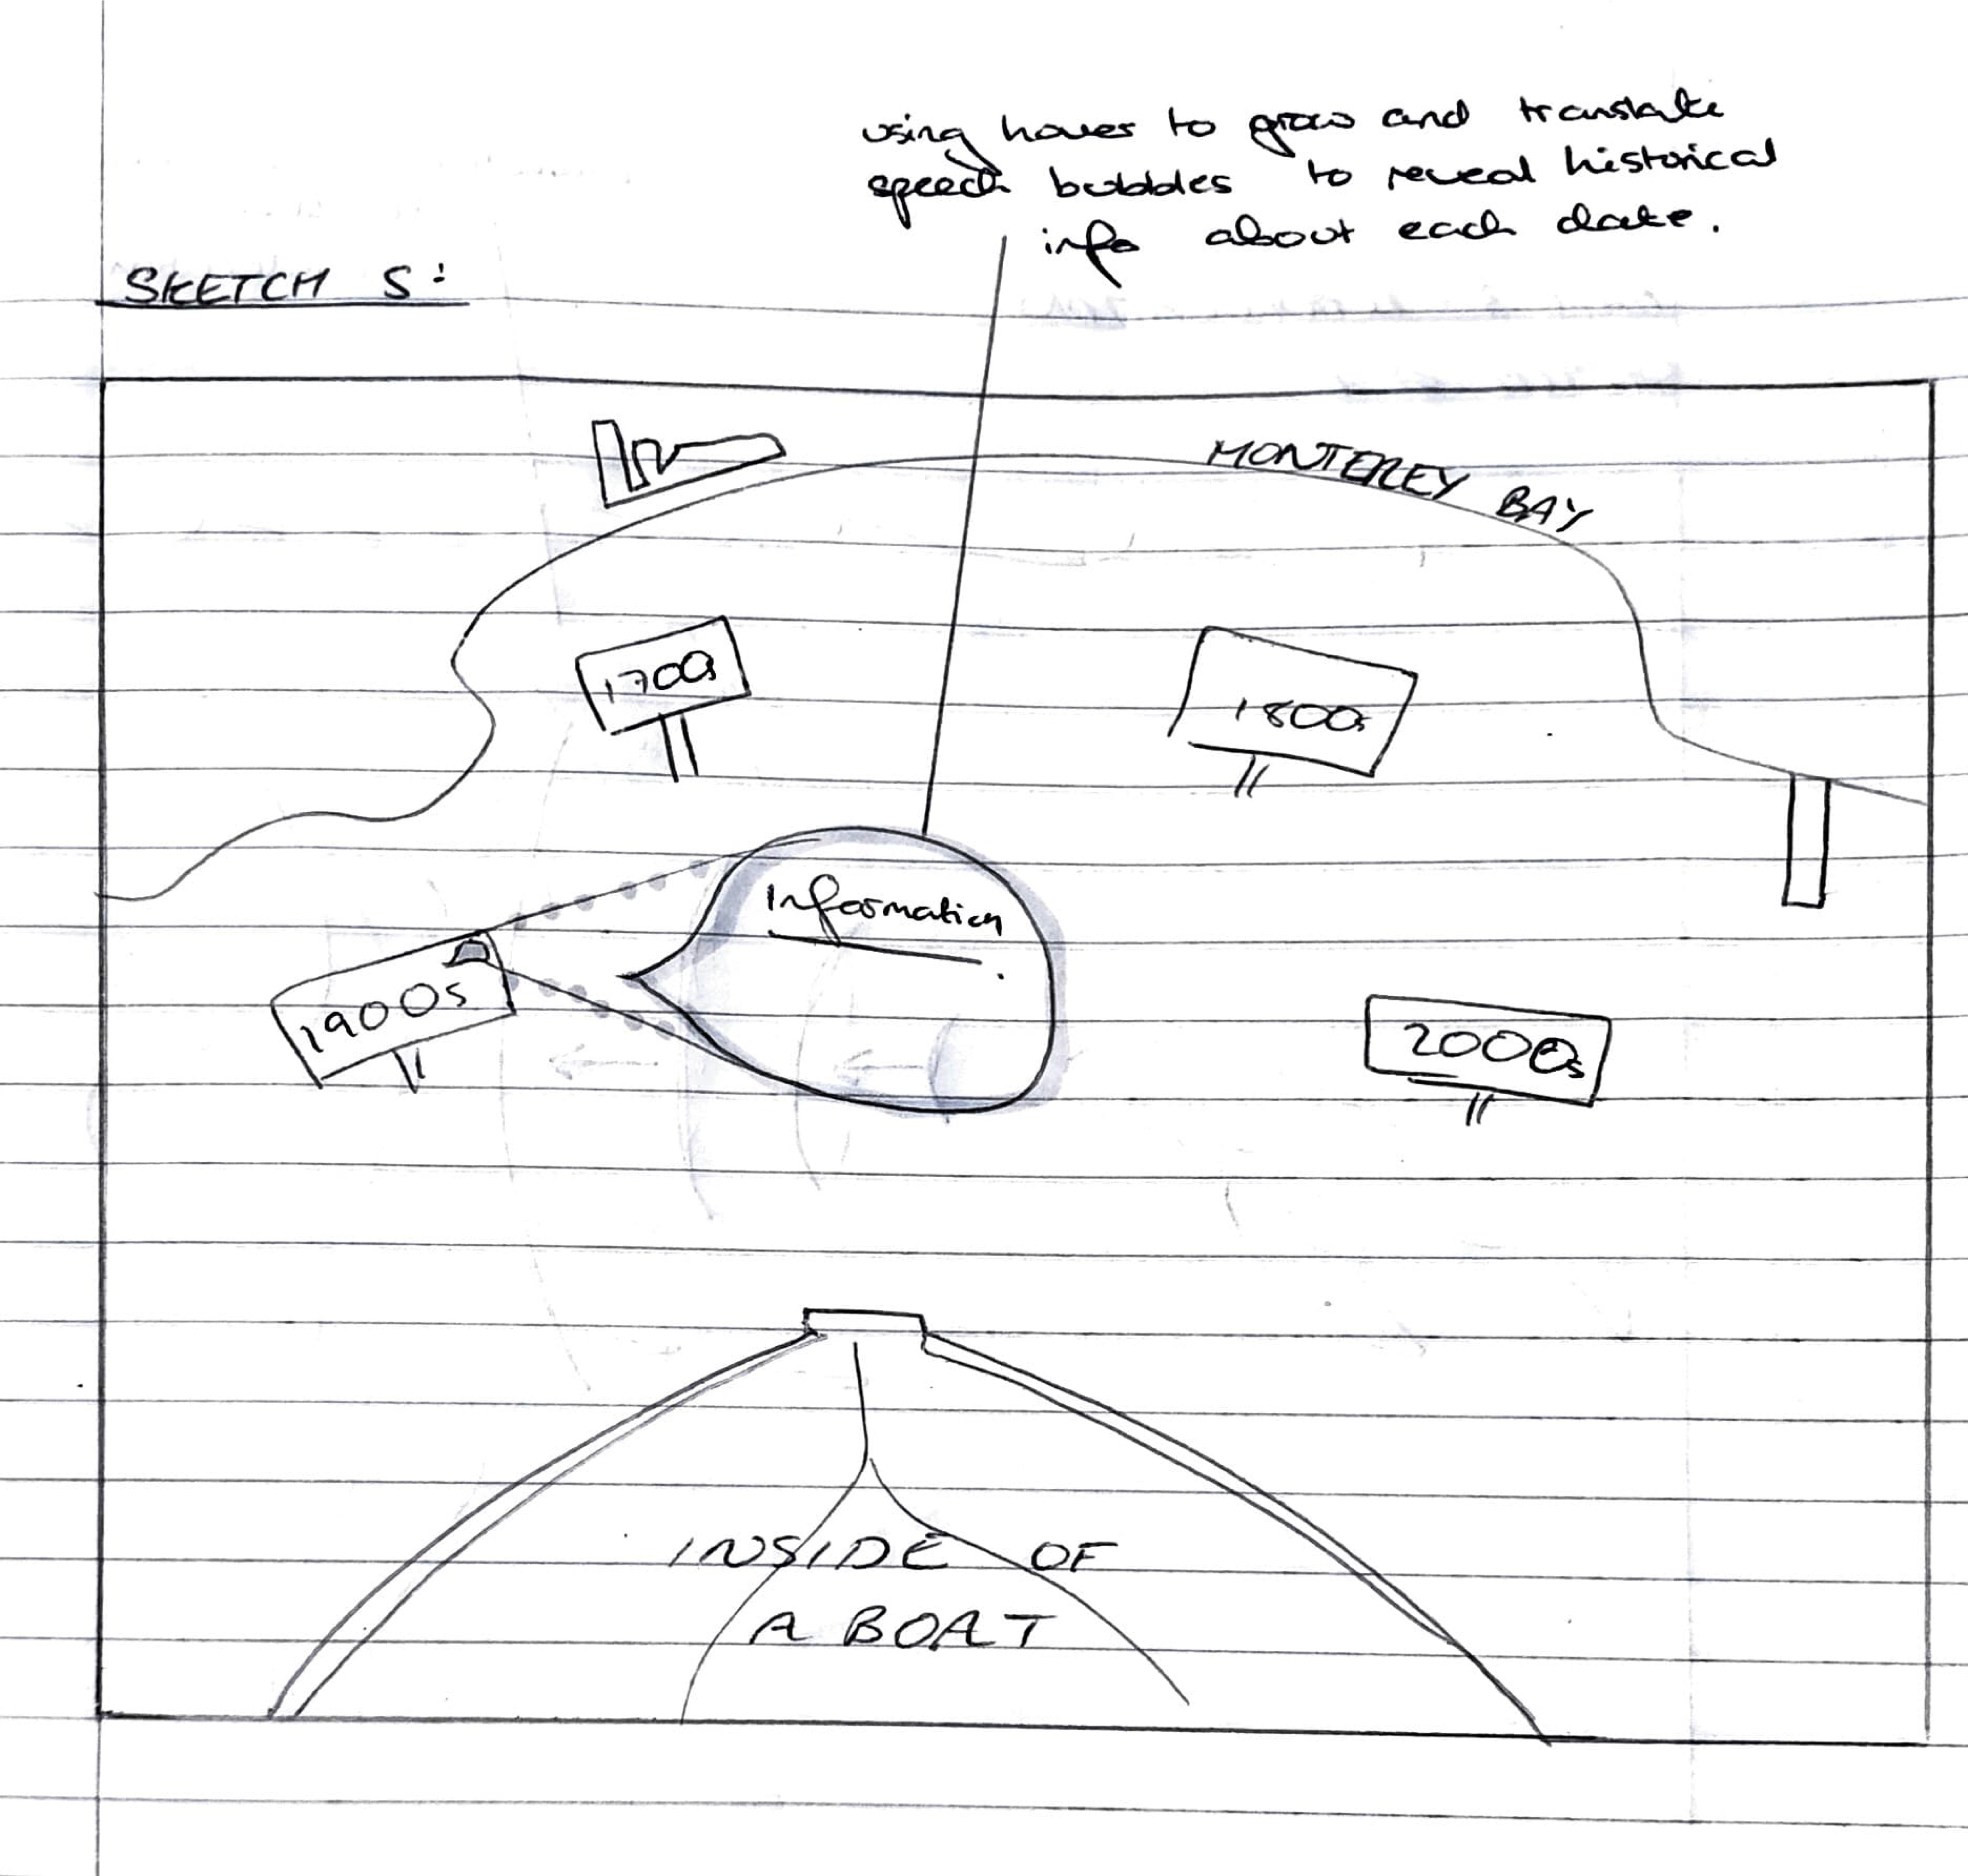 using hover to grow and translate
speech bubbles to reveal historical
info about each date.
SKETCH 5:
MONTEREY BAY
1700s
1800s
Information
1900s
2000s
INSIDE OF
A BOAT